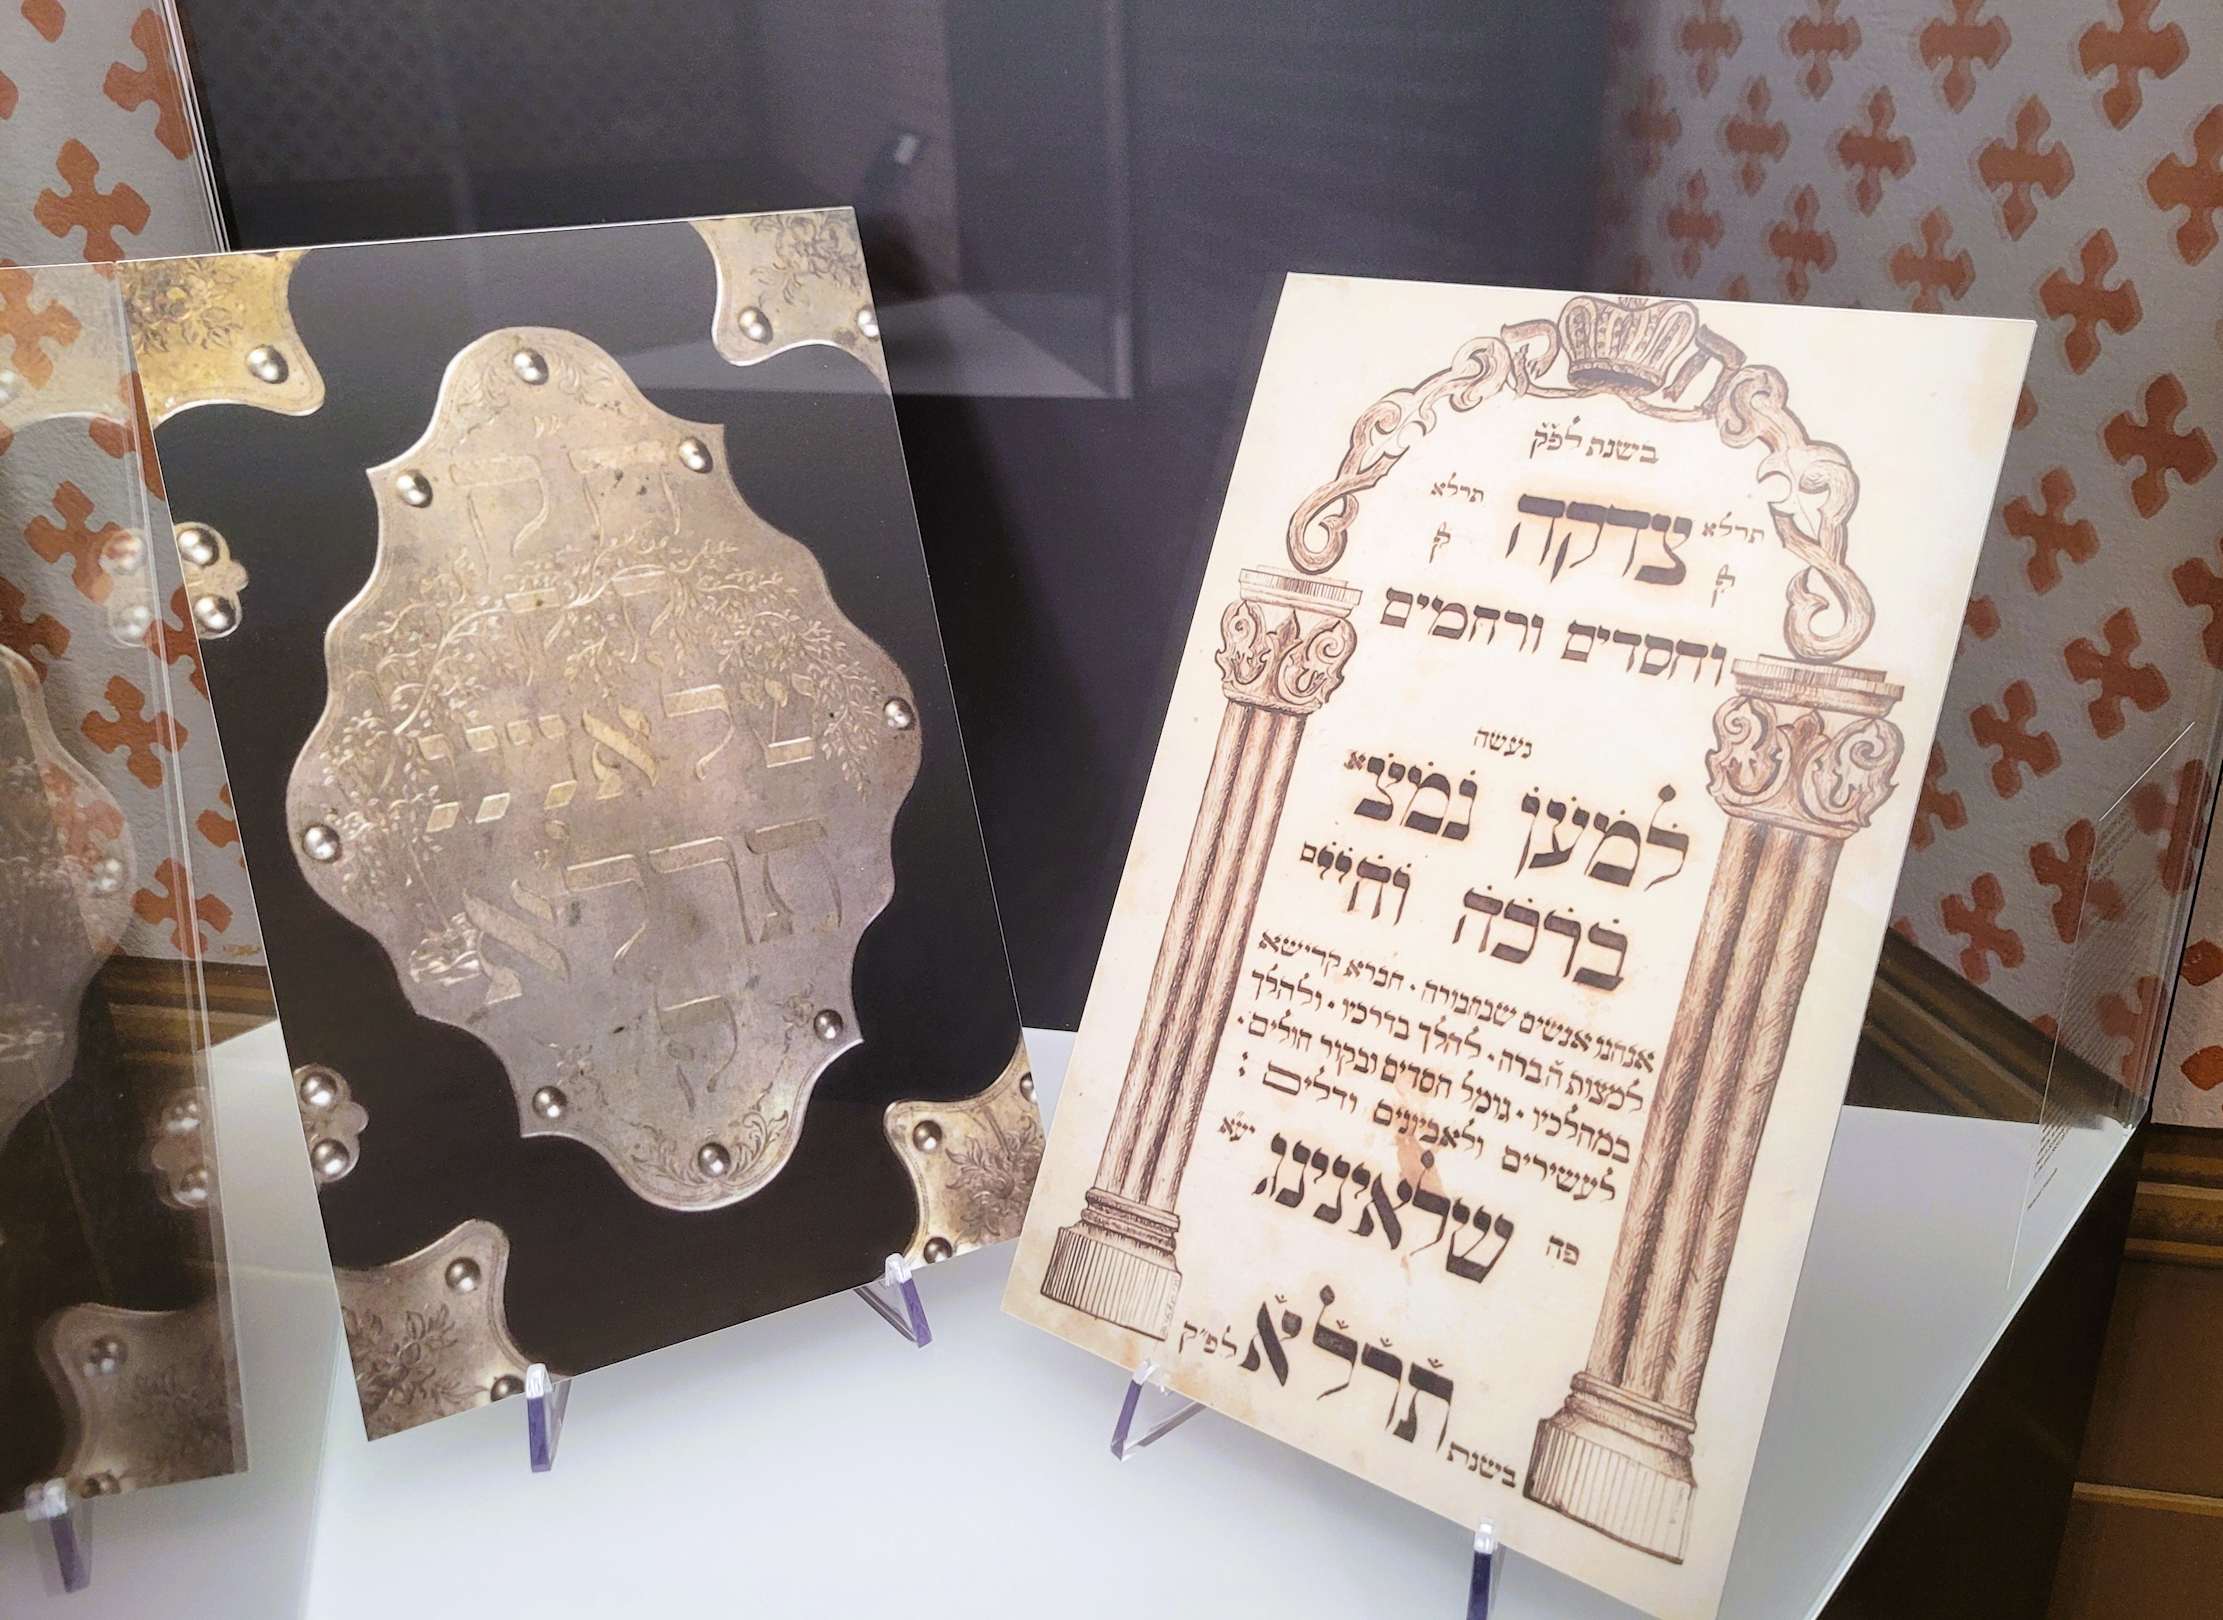 חק
תרלא
ח ק
בישנת לפ״ק
תרלא צדקה תרלא
וחסדים ורחמים
נעשה
למען נמצא
ברכה וחיים
אנחנו אנשים שבחבורה · חברא קדישא
למצות · להלך בדרכיו · ולהלך
במהלכיו · גומל חסדים ובקור חולים ·
לעשירים ולאביונים ודלים :
פה שלאינינג יע״א
בישנת תרלא לפ״ק